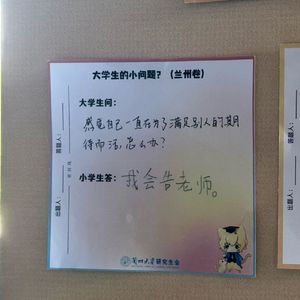 大学生的小问题？（兰州卷）
大学生问：
感觉自己一直在为了满足别人的期
待而活，怎么办？
小学生答：我会告老师。
答题人：
出题人：
兰州大学研究生会